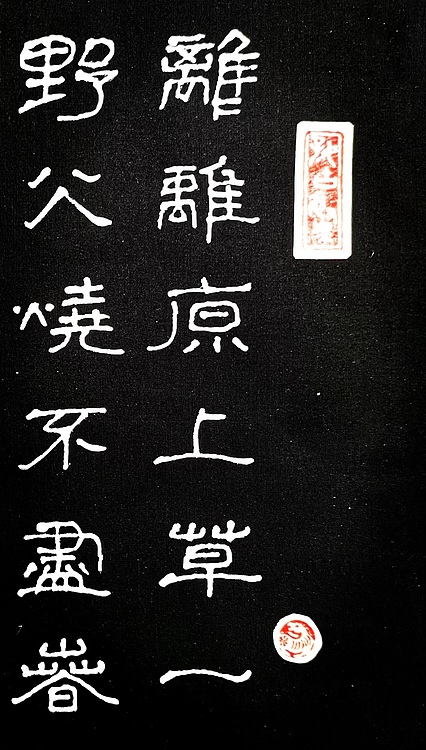 離離原上草一
野火燒不盡春